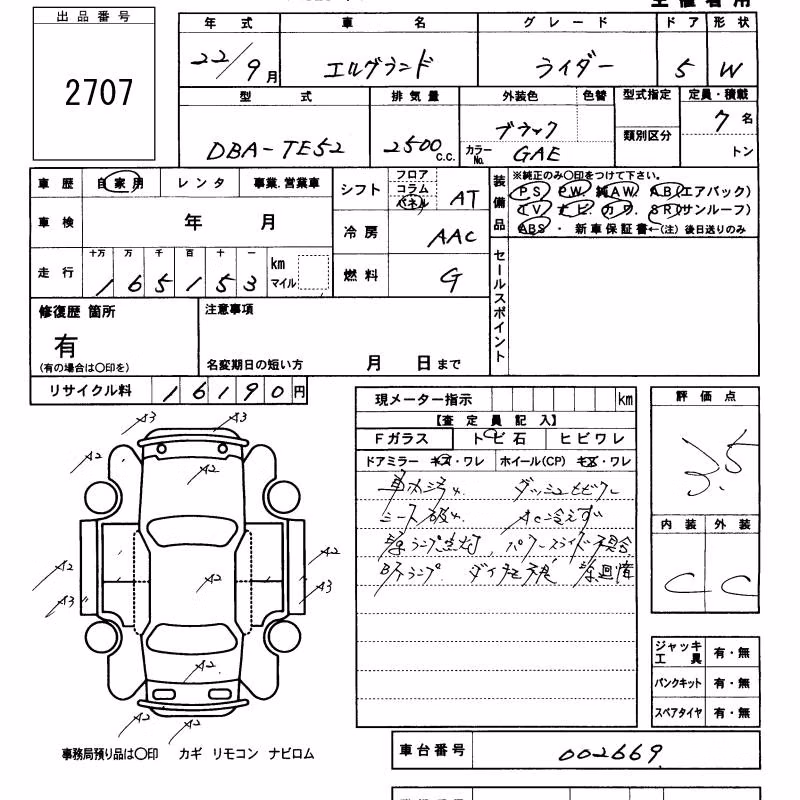 出品番号
2707
年式 車名 グレード ドア 形状
22/9月 エルグランド ライダー 5 W
型式 排気量 外装色 色替 型式指定 定員・積載
DBA-TE52 2500 c.c. ブラック 類別区分 7名
カラーNo. GAE トン
車歴 自家用 レンタ 事業.営業車 シフト フロア コラム パネル AT
装備品 ※純正のみ〇印をつけて下さい。
PS PW 純AW. AB(エアバック)
TV ナビ カワ. SR(サンルーフ)
ABS ・ 新車保証書←(注) 後日送りのみ
車検 年 月 冷房 AAC
走行 十万 万 千 百 十 一
165153 km マイル 燃料 G
セールスポイント
修復歴 箇所 注意事項
有
(有の場合は〇印を) 名変期日の短い方 月 日まで
リサイクル料 16190円
現メーター指示 km
【査定員記入】
Fガラス トビ石 ヒビワレ
ドアミラー キズ・ワレ ホイール(CP) キズ・ワレ
車内汚れ ダッシュヒビワレ
シート破れ AC冷えず
ランプ点灯、パワースライド不具合
評価点
3.5
内装 外装
C C
A3 A3
A2 A2
A2 A2 A2
A3 A3
A2
A2 A2
ジャッキ工具 有・無
パンクキット 有・無
スペアタイヤ 有・無
事務局預り品は〇印 カギ リモコン ナビロム
車台番号 002669